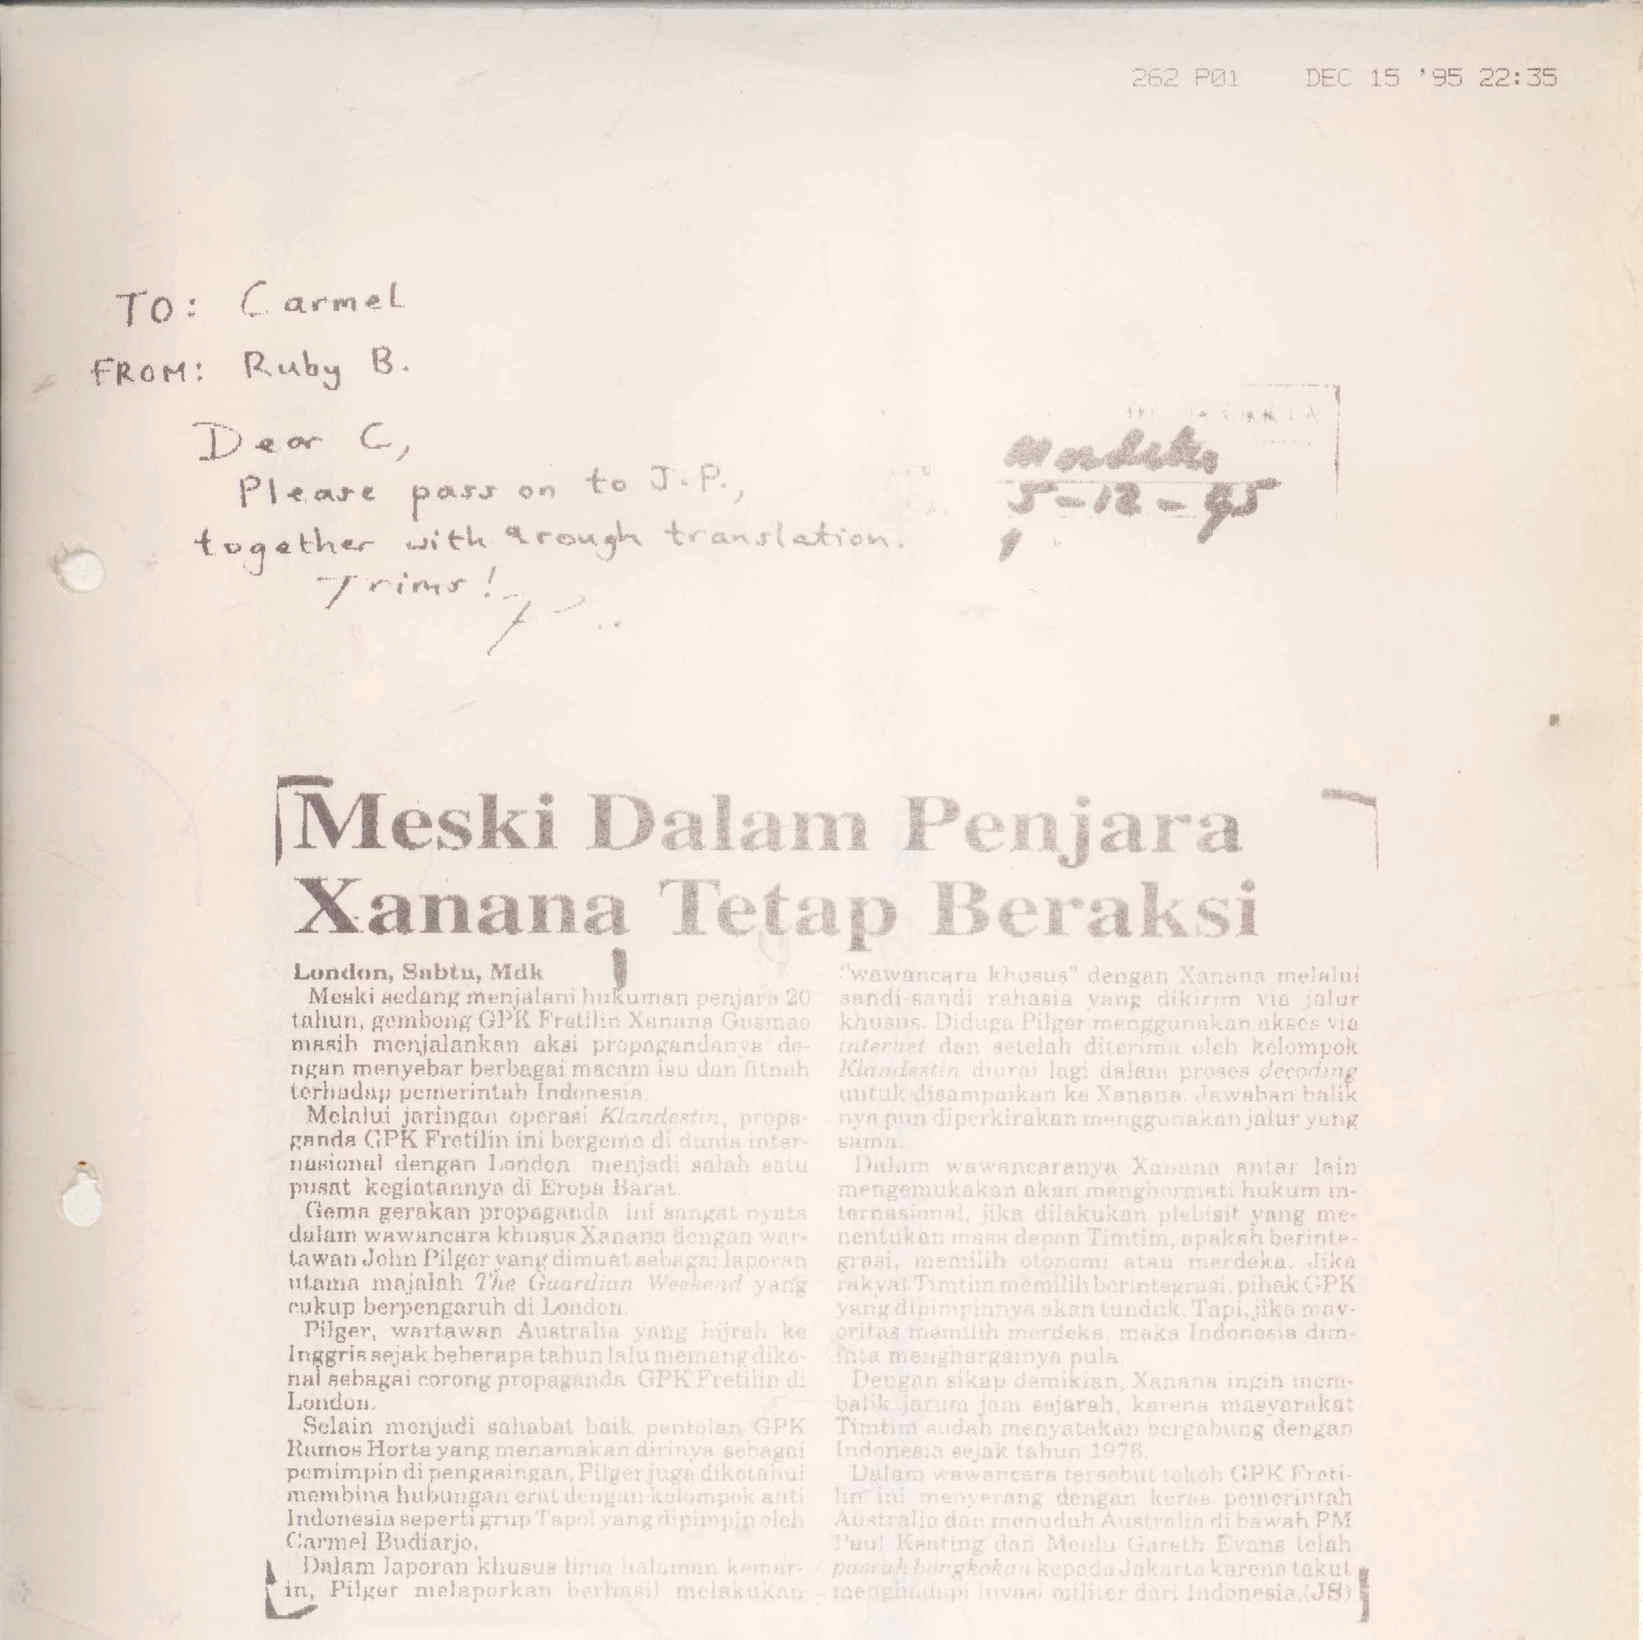 262 P01 DEC 15 '95 22:35
TO: Carmel
FROM: Ruby B.
Dear C,
Please pass on to J.P.,
together with a rough translation.
Trims!
Merdeka
5-12-95
Meski Dalam Penjara
Xanana Tetap Beraksi
London, Sabtu, Mdk
Meski sedang menjalani hukuman penjara 20
tahun, gembong GPK Fretilin Xanana Gusmao
masih menjalankan aksi propagandanya de-
ngan menyebar berbagai macam isu dan fitnah
terhadap pemerintah Indonesia.
Melalui jaringan operasi Klandestin, propa-
ganda GPK Fretilin ini bergema di dunia inter-
nasional dengan London menjadi salah satu
pusat kegiatannya di Eropa Barat.
Gema gerakan propaganda ini sangat nyata
dalam wawancara khusus Xanana dengan war-
tawan John Pilger yang dimuat sebagai laporan
utama majalah The Guardian Weekend yang
cukup berpengaruh di London.
Pilger, wartawan Australia yang hijrah ke
Inggris sejak beberapa tahun lalu memang dike-
nal sebagai corong propaganda GPK Fretilin di
London.
Selain menjadi sahabat baik pentolan GPK
Ramos Horta yang menamakan dirinya sebagai
pemimpin di pengasingan, Pilger juga diketahui
membina hubungan erat dengan kelompok anti
Indonesia seperti grup Tapol yang dipimpin oleh
Carmel Budiarjo.
Dalam laporan khusus lima halaman kemar-
in, Pilger melaporkan berhasil melakukan
"wawancara khusus" dengan Xanana melalui
sandi-sandi rahasia yang dikirim via jalur
khusus. Diduga Pilger menggunakan akses via
internet dan setelah diterima oleh kelompok
Klandestin diurai lagi dalam proses decoding
untuk disampaikan ke Xanana. Jawaban balik
nya pun diperkirakan menggunakan jalur yang
sama.
Dalam wawancaranya Xanana antar lain
mengemukakan akan menghormati hukum in-
ternasional, jika dilakukan plebisit yang me-
nentukan masa depan Timtim, apakah berinte-
grasi, memilih otonomi atau merdeka. Jika
rakyat Timtim memilih berintegrasi, pihak GPK
yang dipimpinnya akan tunduk. Tapi, jika may-
oritas memilih merdeka, maka Indonesia dim-
inta menghargainya pula.
Dengan sikap demikian, Xanana ingin mem-
balik jarum jam sejarah, karena masyarakat
Timtim sudah menyatakan bergabung dengan
Indonesia sejak tahun 1976.
Dalam wawancara tersebut tokoh GPK Freti-
lin ini menyerang dengan keras pemerintah
Australia dan menuduh Australia di bawah PM
Paul Keating dan Menlu Gareth Evans telah
pasrah bongkokan kepada Jakarta karena takut
menghadapi invasi militer dari Indonesia.(JS)